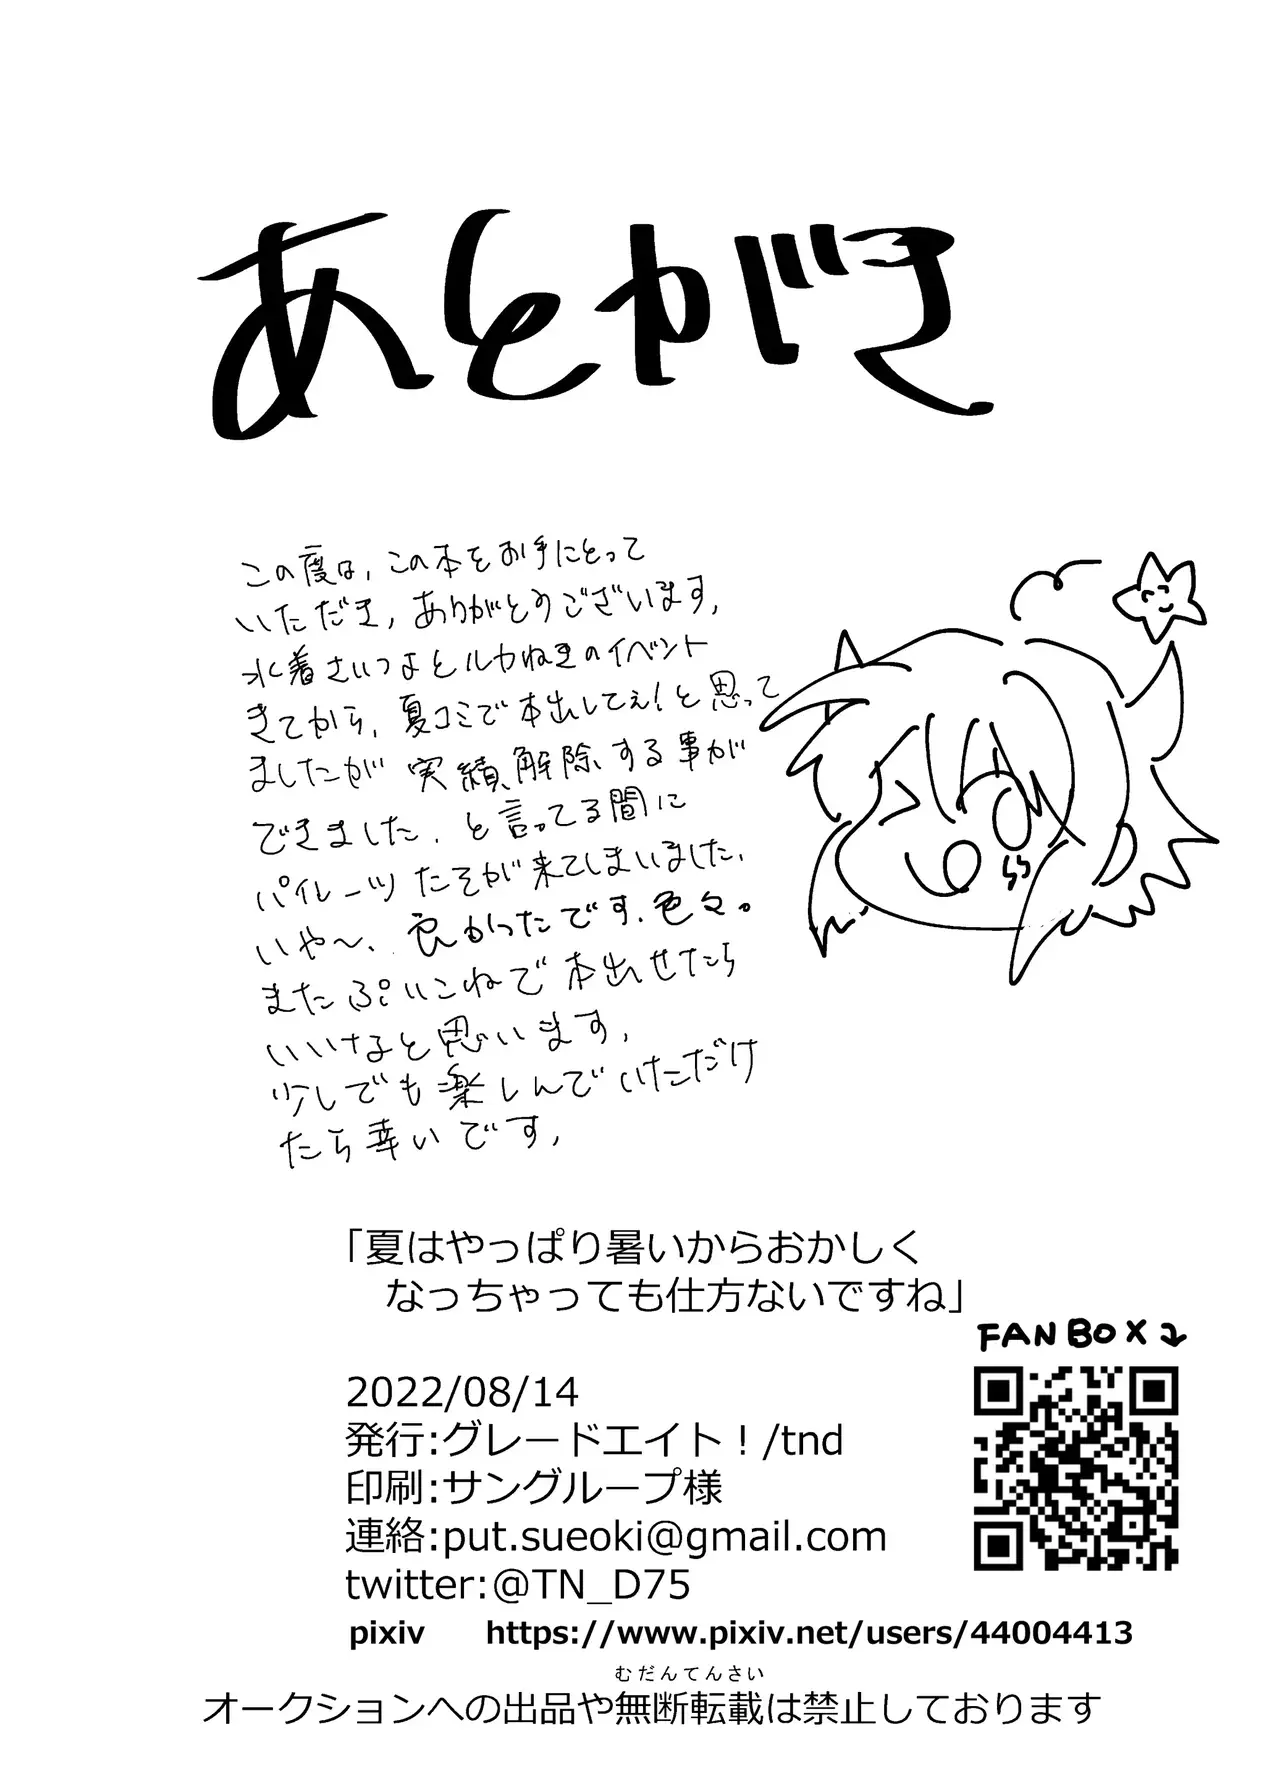 あとがき
この度は、この本をお手にとって
いただき、ありがとうございます。
水着さいつよとルカねきのイベント
きてから、夏コミで本出してぇ!と思って
ましたが実績解除する事が
できました。と言ってる間に
パイレーツたそが来てしまいました。
いや〜、良かったです。色々。
またぷいこねで本出せたら
いいなと思います。
少しでも楽しんでいただけ
たら幸いです。
「夏はやっぱり暑いからおかしく
なっちゃっても仕方ないですね」
FANBOX
2022/08/14
発行:グレードエイト!/tnd
印刷:サングループ様
連絡:put.sueoki@gmail.com
twitter:@TN_D75
pixiv https://www.pixiv.net/users/44004413
むだんてんさい
オークションへの出品や無断転載は禁止しております